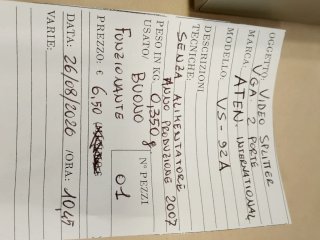 OGGETTO: VIDEO SPLITTER
VGA 2 PORTE
MARCA: ATEN INTERNATIONAL
MODELLO: VS-92A
DESCRIZIONI TECNICHE:
SENZA ALIMENTATORE
ANNO PRODUZIONE 2007
PESO IN KG 0,350 g
USATO/ BUONO N° PEZZI
FUNZIONANTE 01
PREZZO: € 6,50
DATA: 26/08/2020 /ORA: 10,45
VARIE: